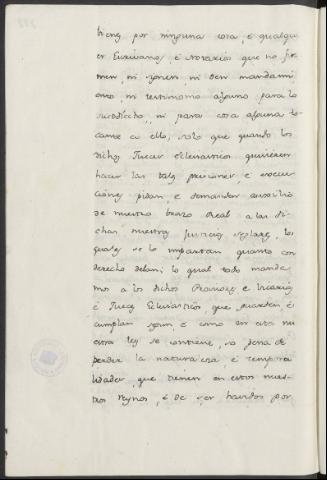 bieng por ninguna cosa, é qualqui
er Escrivano, é Notarios que no fir
men, ni signen, ni den mandami
ento, ni testimonio alguno para lo
susodicho, ni para cosa alguna to
cante a ello, salvo que quando los
dichos Jueces eclesiasticos quisieren
hacer las tales prisiones, é execu
ciones pidan, é demanden auxilio
de nuestro brazo Real a las di
chas nuestras Justicias seglares, los
quales se lo impartan quanto con
derecho deban: lo qual todo manda
mos a los dichos Provisores é Vicarios
é Jueces Eclesiasticos, que guarden, é
cumplan segun, é como en esta nu
estra ley se contiene, so pena de
perder la naturaleza, é tempora
lidades, que tienen en estos nues-
tros reynos, é de ser havidos por